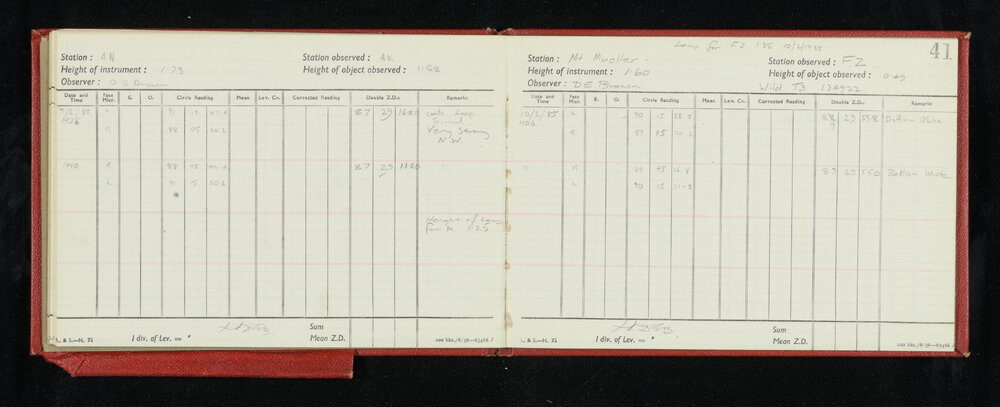 Station : AN Station observed : AK
Height of instrument : 1.73 Height of object observed : 1.58
Observer : D E Brown
Date and Time Face Micr. E. O. Circle Reading Mean Lev. Cr. Corrected Reading Double Z.Ds. Remarks
9/2/85 91 15 87 29 16.80
1428 Very Strong
R 88 45 N.W.
1440 R 88 45 87 29 11.80
L 91 15 50.6
Height of Lamp
for K 1.25
1 div. of Lev. = " Sum
L. & S.—N. 72 Mean Z.D. 200 bks./8/56—65416
Lamp for FZ 135 10/2/1985
41
Station : Mt Mueller. Station observed : FZ
Height of instrument : 1.60 Height of object observed : 0.49
Observer : D E Brown Wild T3 174922
Date and Time Face Micr. E. O. Circle Reading Mean Lev. Cr. Corrected Reading Double Z.Ds. Remarks
10/2/85 L 90 15 29 55.8 Bottom White
1106 R 89 45
" R 89 45 89 29 55.0 Bottom White
L 90 15
1 div. of Lev. = " Sum
L. & S.—N. 72 Mean Z.D. 200 bks./8/56—65416